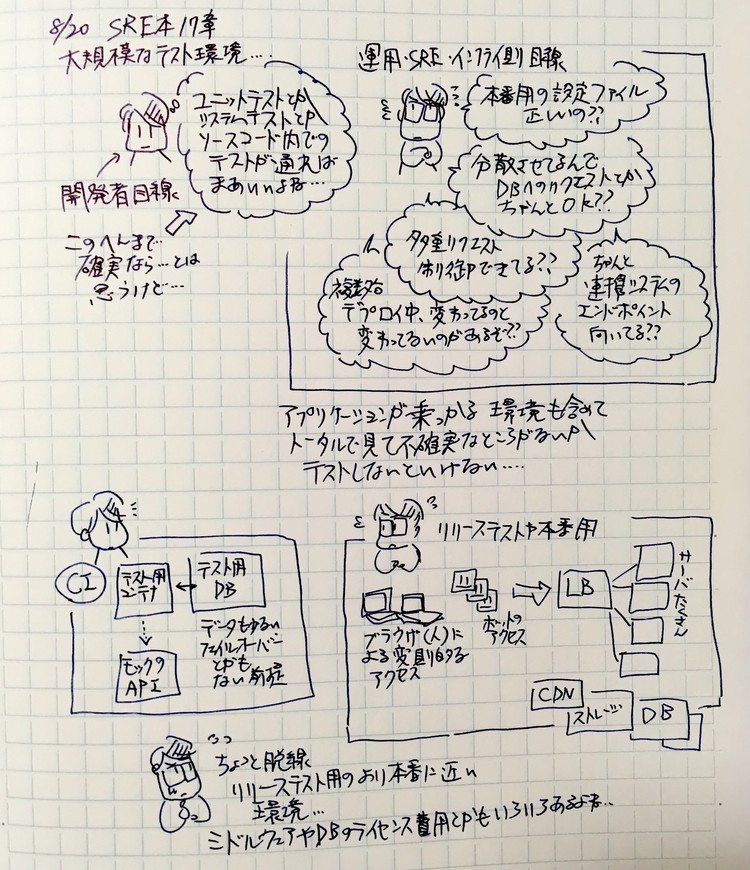 8/20 SRE本17章
大規模なテスト環境…
ユニットテストとか
システムテストとか
ソースコード内での
テストが通れば
まあいいよね…
開発者目線
このへんまで
確実なら…とは
思うけど…
運用・SRE・インフラ側目線
本番用の設定ファイル
正しいの??
分散させてるんで
DBへのリクエストとか
ちゃんとOK??
多重リクエスト
制御できてる??
ちゃんと
連携システムの
エンドポイント
向いてる??
複数台
デプロイ中、変わってるのと
変わってないのがあるぞ??
アプリケーションが乗っかる環境も含めて
トータルで見て不確実なところがないか
テストしないといけない….
CI
テスト用
コンテナ
テスト用
DB
モックの
API
データもゆるい
フェイルオーバー
とかも
ない前提
リリーステストや本番用
ブラウザ(人)に
よる変則的な
アクセス
ボットの
アクセス
LB
サーバたくさん
CDN
ストレージ
DB
ちょっと脱線
リリーステスト用のより本番に近い
環境…
ミドルウェアやDBのライセンス費用とかもいろいろあるよな..